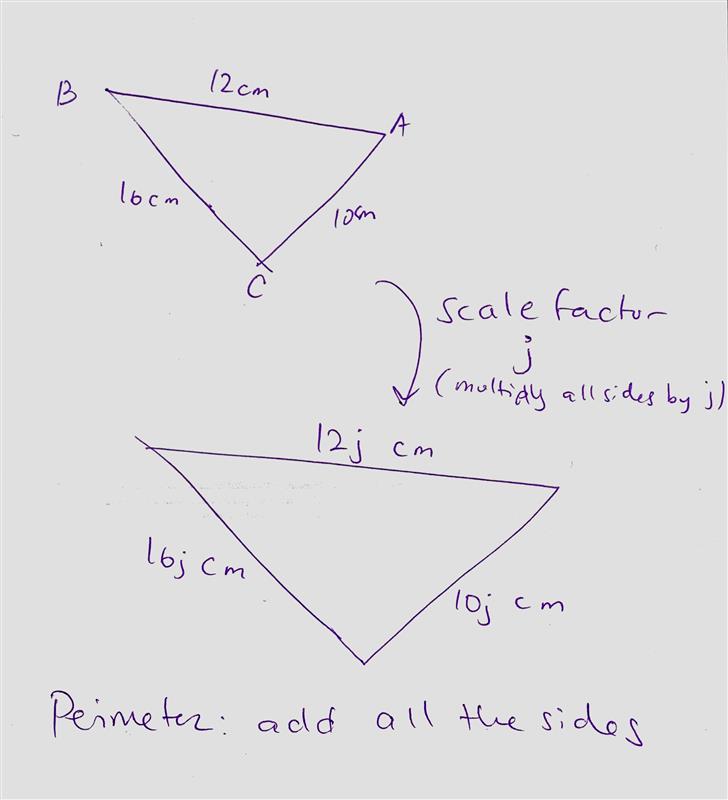 B
12cm
A
16cm
10cm
C
scale factor
j
(multiply all sides by j)
12j cm
16j cm
10j cm
Perimeter: add all the sides